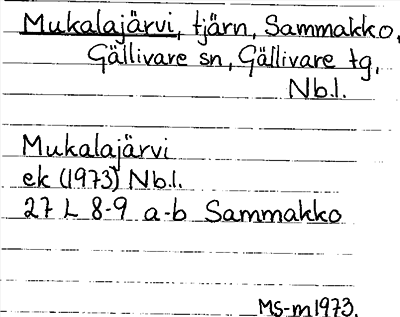 Mukalajärvi, tjärn, Sammakko,
Gällivare sn, Gällivare tg,
Nb.l.
Mukalajärvi
ek (1973) Nb.l.
27 L 8-9 a-b Sammakko
MS-m1973.